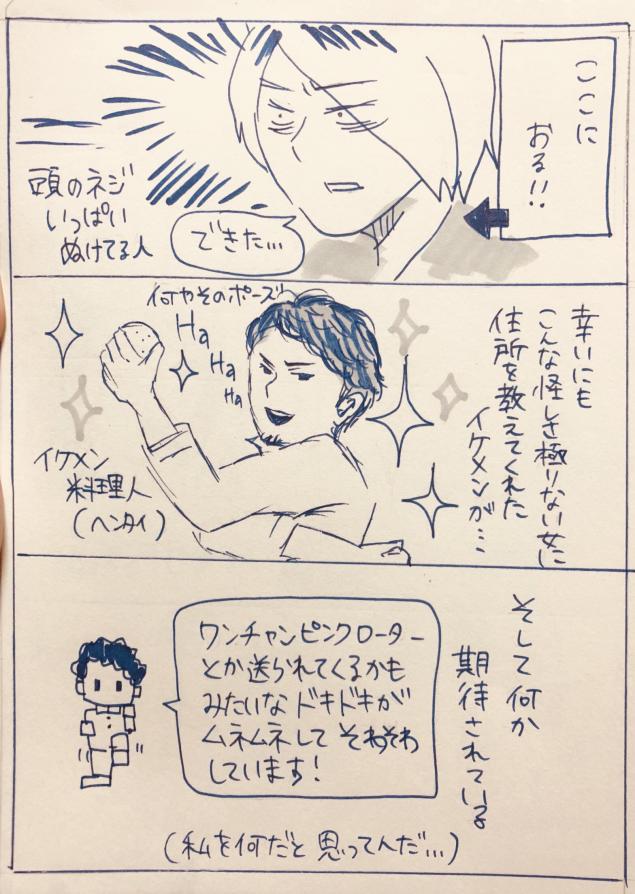 ここに
おる!!
できた…
頭のネジ
いっぱい
ぬけてる人
幸いにも
こんな怪しき極りない女に
住所を教えてくれた
イケメンが…
何やそのポーズ
Ha
Ha
Ha
イケメン
料理人
(ヘンタイ)
そして何か
期待されている
ワンチャンピンクローター
とか送られてくるかも
みたいなドキドキが
ムネムネして そわそわ
しています!
(私を何だと思ってんだ…)